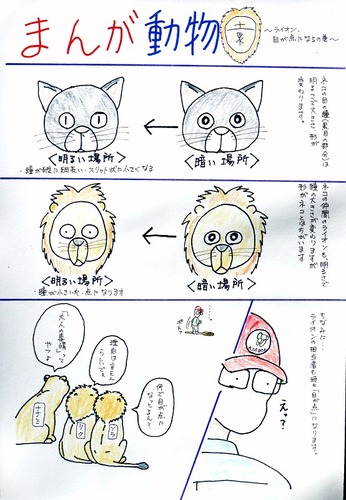 まんが動物
〜ライオン、
目が点になるの巻〜
ネコの目の瞳(黒目の部分)は
明るさで大きさ、形が
変わります。
<明るい場所>
<暗い場所>
・瞳が縦に細長い、スリット状に小さくなる
ネコの仲間のライオンも、明るさで
瞳の大きさが変わりますが
形がネコとちがいます
<明るい場所>
<暗い場所>
・瞳が小さい丸、点になります
ちなみに…
ライオンの担当者も時々「目が点」になります。
えっ?
何で目が点に
なってるん?
理由は色々
らしいでぇ。
「大人の事情」って
やつよ